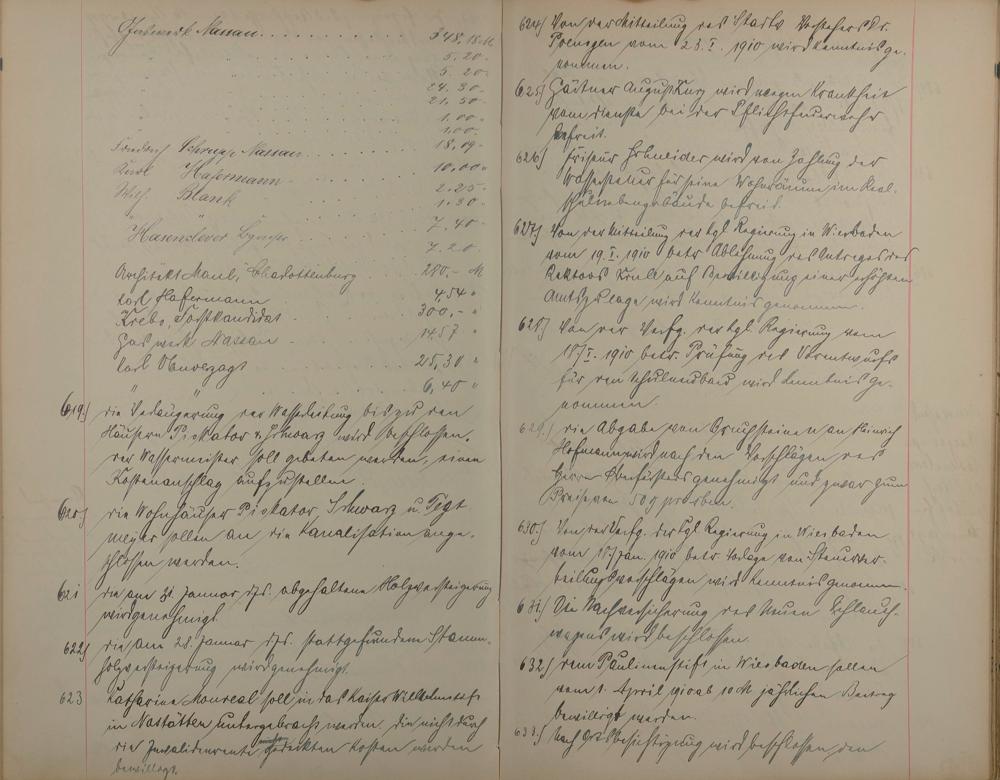 Gaswerk Nassau . . . . . . . . . . 548,18 M
" " . . . . . . . 5.20 "
" " . . . . . . . 5.20 "
" " . . . . . . . 24.30 "
" " . . . . . . . 21.50 "
" " . . . . . . . 1.00 "
" " . . . . . . . 1.00 "
Schrupp Nassau . . . . . 18.19 "
Hafermann . . . . . 10.00 "
Wilh. Blank . . . . . 2.25 "
1.30 "
Hasenclever . . . . . 7.40 "
7.20
Architekt Maul, Charlottenburg . . . 280,- M
Carl Hafermann . . . . . 4,54 "
Krebs, Forstkandidat . . . . 300,- "
Gaswerk Nassau . . . . 14.57 "
Carl . . . . 25,30 "
" " . . . . 6,40 "
619.) die Verlängerung der Wasserleitung bis zu den
Häusern Piskator u. Schwarz wird beschlossen.
der Wassermeister soll gebeten werden, einen
Kostenanschlag aufzustellen.
620.) die Wohnhäuser Piskator, Schwarz u. Tegt
meyer sollen an die Kanalisation ange-
schlossen werden.
621 die am 31. Januar ds. abgehaltene Holzversteigerung
wird genehmigt
622.) die am 28. Januar ds. stattgefundene Stamm-
holzversteigerung wird genehmigt.
623 Katharina Monreal soll in das Kaiser Wilhelmstift
in Nastätten untergebracht werden. die nicht durch
die Invalidenrente gedeckten Kosten werden
bewilligt.
624.) Von der Mitteilung des Stadtv. Vorstehers Dr.
Poensgen vom 23. I. 1910 wird Kenntnis ge-
nommen.
625.) Gärtner August Kurz wird wegen Krankheit
vom Dienste bei der Pflichtfeuerwehr
befreit.
626.) Friseur Schneider wird von Zahlung der
Wassersteuer für seine Wohnräume im Real-
schulnebengebäude befreit.
627.) Von der Mitteilung der kgl Regierung in Wiesbaden
vom 19. I. 1910 betr Ablehnung des Antrages des
Rektors Krull auf Bewilligung einer erhöhten
Amtszulage wird Kenntnis genommen.
628.) Von der Verfg. der kgl. Regierung vom
18/I. 1910 betr. Prüfung des Vorentwurfs
für den Schulneubau wird Kenntnis ge-
nommen.
629.) die Abgabe von Bruchsteinen an Heinrich
Hofmann wird nach den Vorschlägen des
Herrn Oberförsters genehmigt und zwar zum
Preise von 50 pro cbm.
630.) Von der Verfg. der kgl Regierung in Wiesbaden
vom 18/Jan. 1910 betr. Vorlage von Steuerver-
teilungsvorschlägen wird Kenntnis genommen.
631.) Die Nachversicherung des Neuen Schlauch-
wagens wird beschlossen.
632.) dem Paulinenstift in Wiesbaden sollen
vom 1. April 1910 ab 10 M jährlichen Beitrag
bewilligt werden.
633.) Nach Ortsbesichtigung wird beschlossen, den